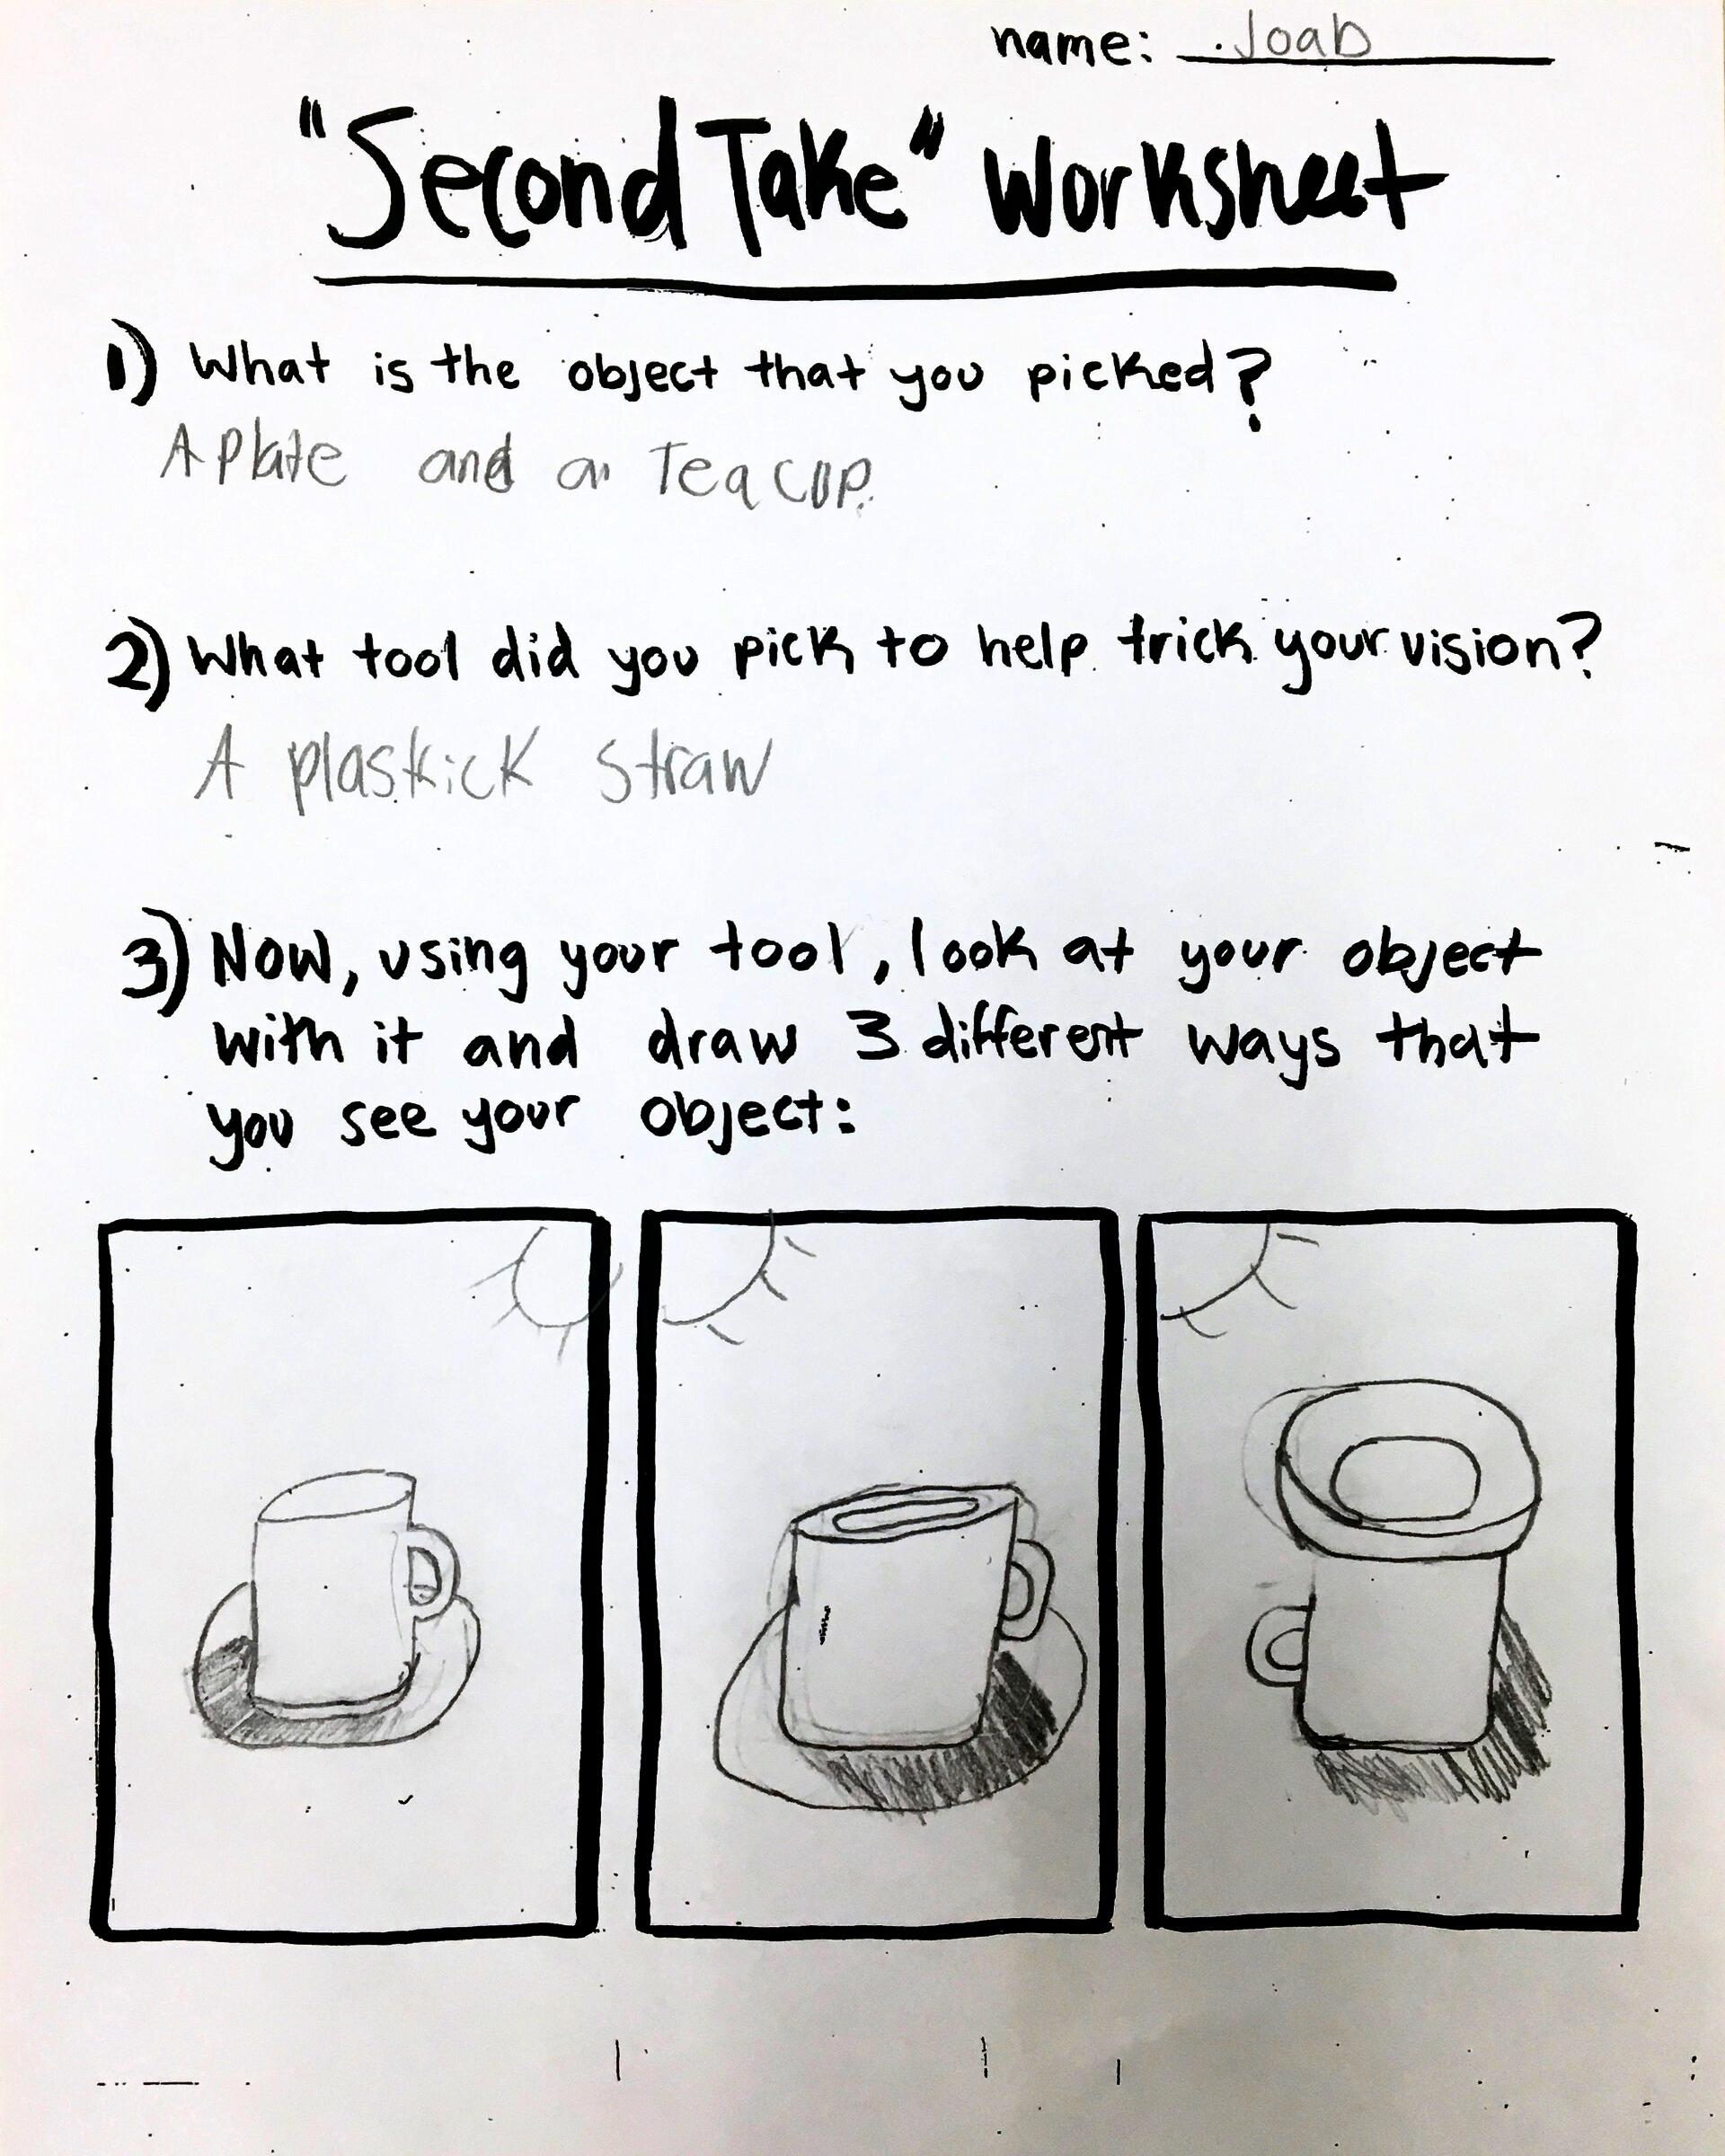 name: Joab
"Second Take" Worksheet
1) What is the object that you picked?
A Plate and a Tea cup.
2) What tool did you pick to help trick your vision?
A plaskick straw
3) Now, using your tool, look at your object
with it and draw 3 different ways that
you see your object: